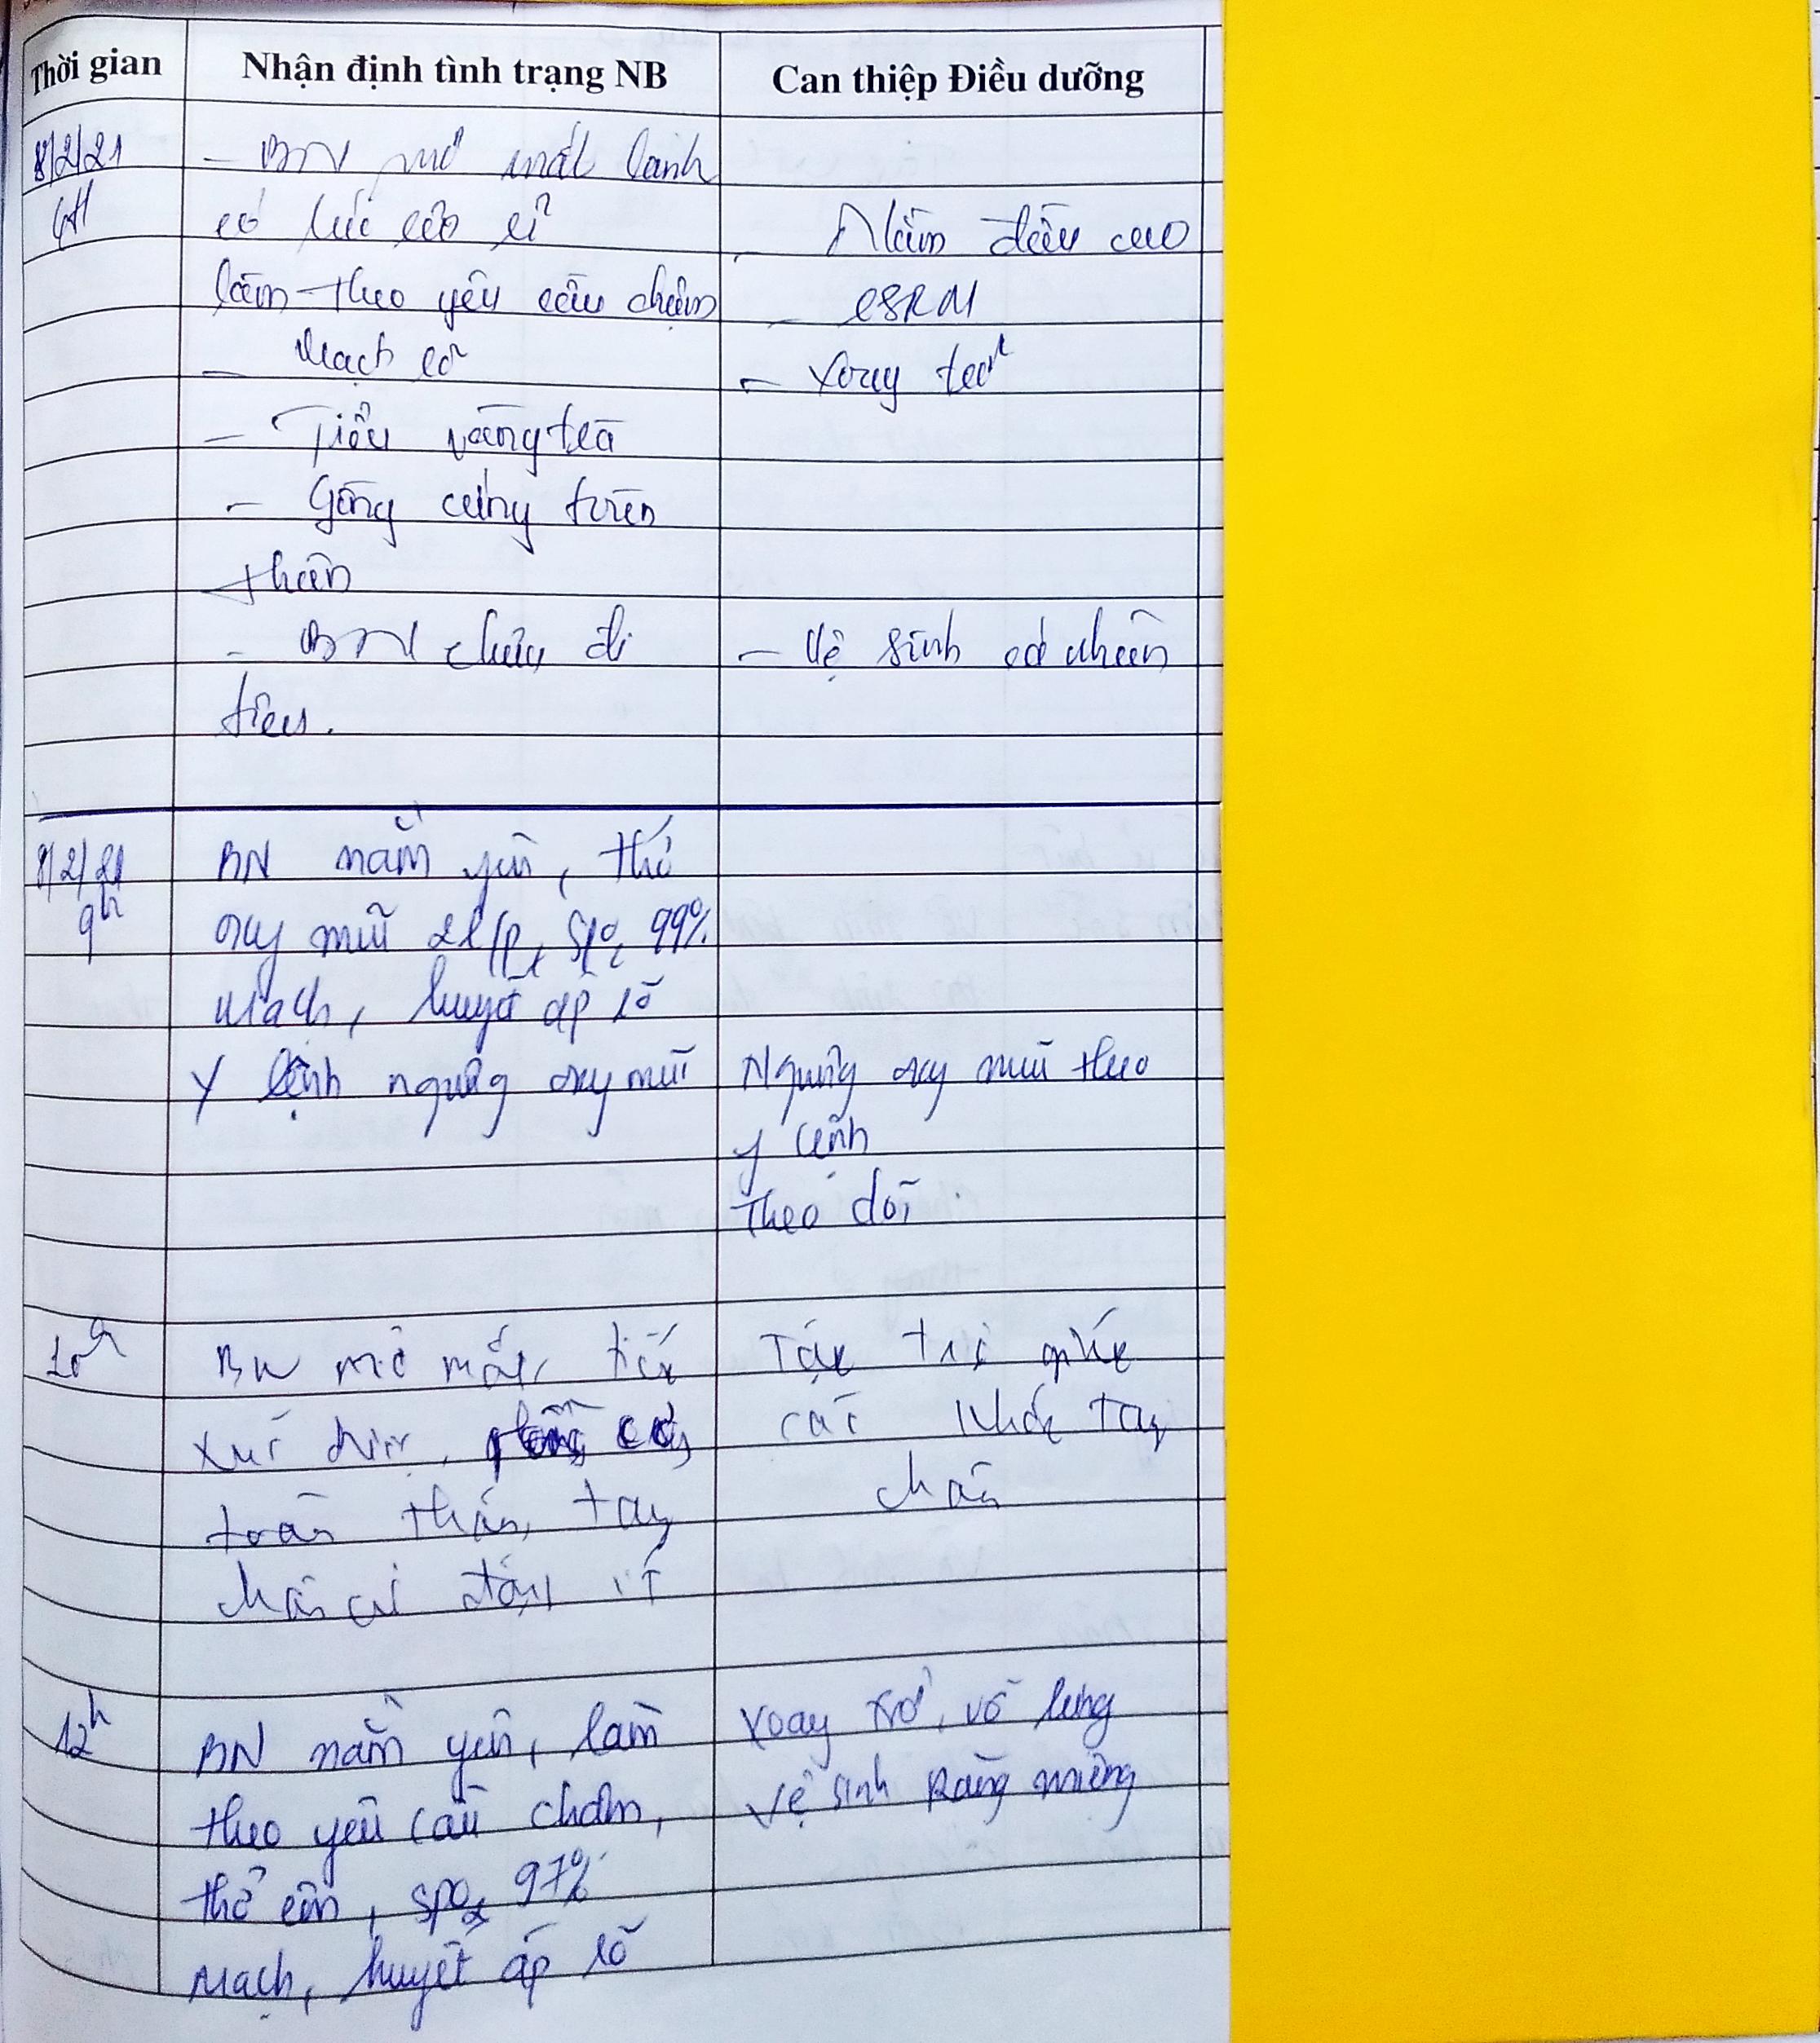 Thời gian
Nhận định tình trạng NB
Can thiệp Điều dưỡng
8/2/21
- BN mở mắt lanh
có lúc
làm theo yêu cầu chậm
- Mạch rõ
- Tiểu vàng trà
- Gồng cứng toàn
thân
- BN chưa đi
tiêu.
- Nằm đầu cao
- CSRM
- Xoay trở
- Vệ sinh cá nhân
8/2/21
9h
BN nằm yên, thở
oxy mũi 2l/p, SpO2 99%
Mạch, huyết áp rõ
Y lệnh ngưng oxy mũi
Ngưng oxy mũi theo
y lệnh
Theo dõi
10h
BN mở mắt, tiếp
xúc được, gồng cứng
toàn thân, tay
chân cử động ít
Tập trợ giúp
các khớp tay
chân
12h
BN nằm yên, làm
theo yêu cầu chậm,
thở êm, SpO2 97%
Mạch, huyết áp rõ
Xoay trở, vỗ lưng
Vệ sinh Răng miệng